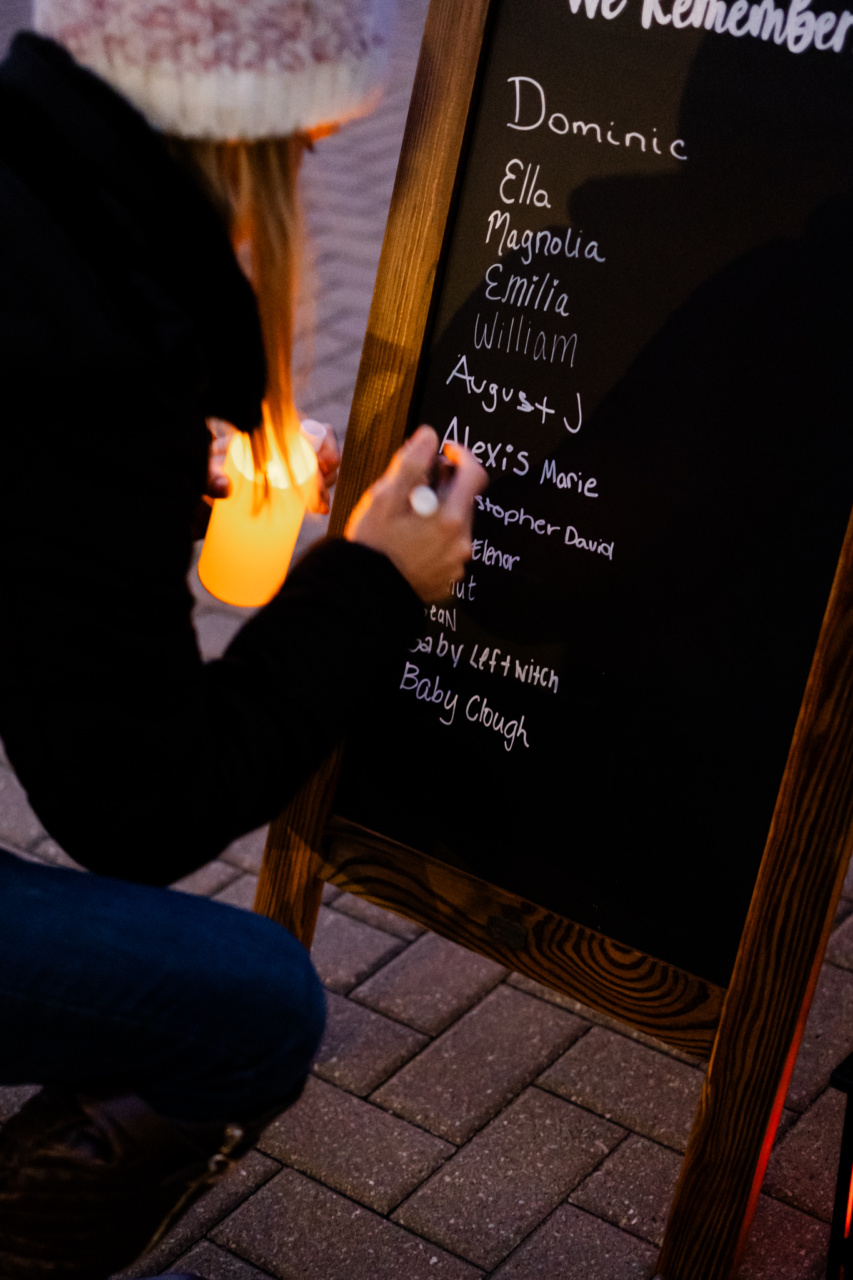 We Remember
Dominic
Ella
Magnolia
Emilia
William
August J
Alexis Marie
stopher David
Elenor
ut
ean
aby Leftwitch
Baby Clough